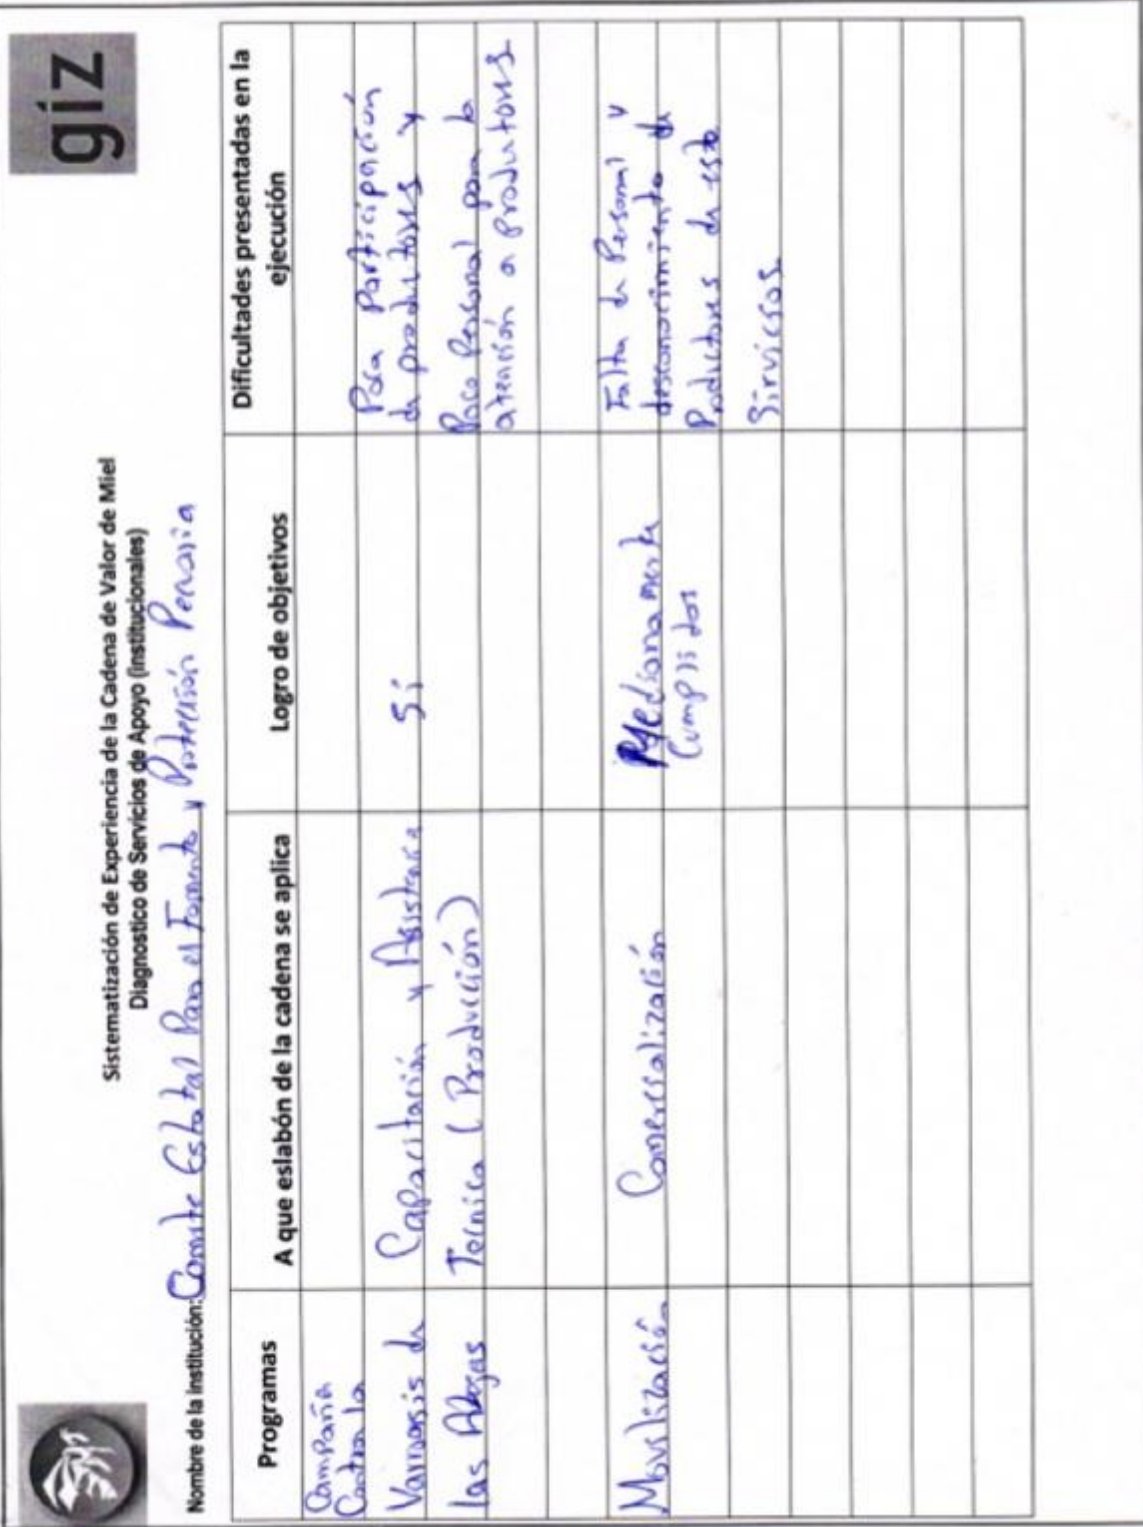 giz
Sistematización de Experiencia de la Cadena de Valor de Miel
Diagnostico de Servicios de Apoyo (institucionales)
Nombre de la institución: Comite Estatal Para el Fomento y Protección Pecuaria
Programas
A que eslabón de la cadena se aplica
Logro de objetivos
Dificultades presentadas en la
ejecución
Campaña
Contra la
Varroasis de
las Abejas
Capacitación y Asistencia
Tecnica (Producción)
Si
Poca Participación
de productores y
Poco Personal para la
atención a productores
Movilización
Comercialización
Medianamente
Cumplidos
Falta de Personal y
desconocimiento de
Productores de esto
Servicios